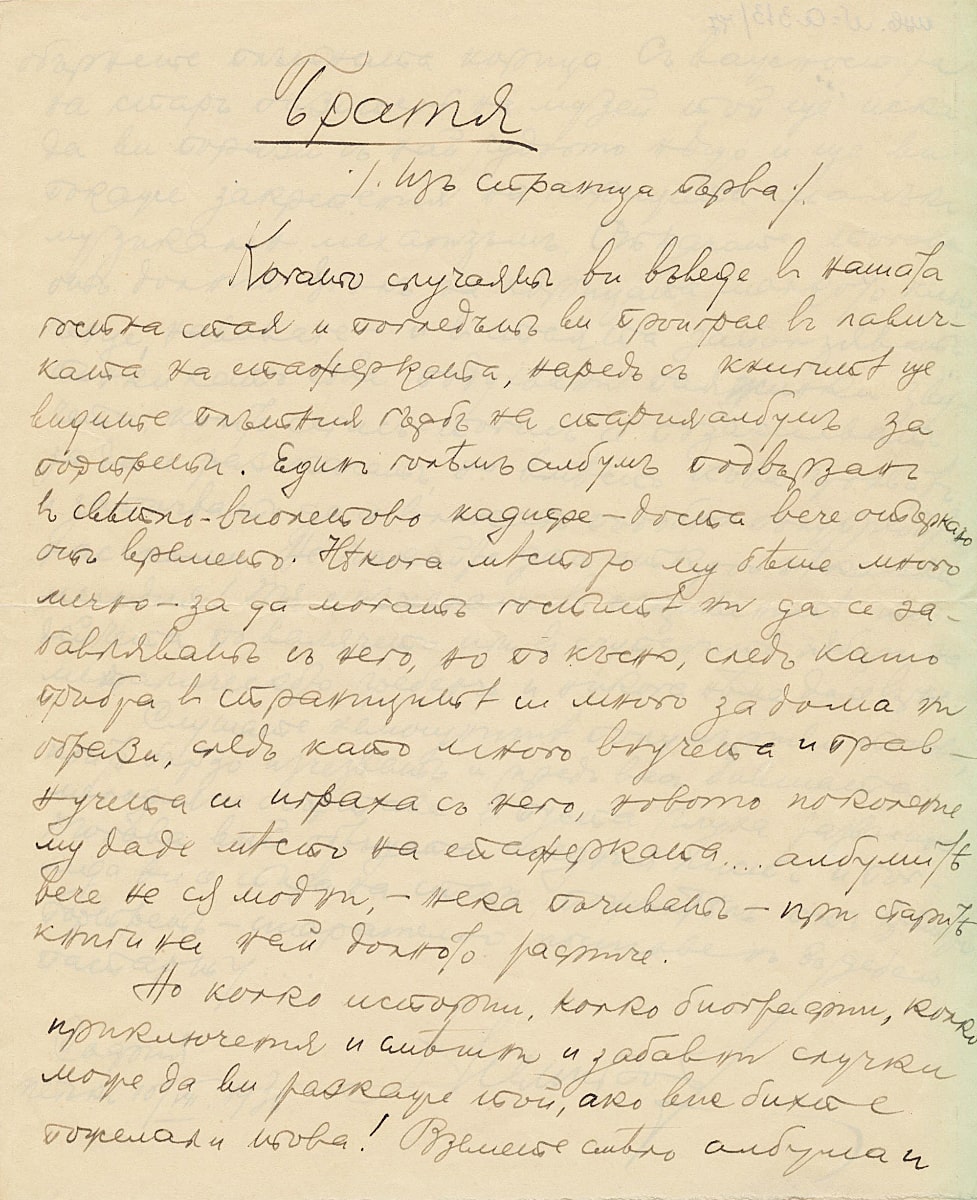 Братя
/. Изъ страница първа ./.
Когато случаятъ ви въведе въ нашата
гостна стая и погледътъ ви проиграе въ лавич-
ката на етажерката, наредъ съ книгитѣ ще
видите плътния гърбъ на стария албумъ за
портрети. Единъ голѣмъ албумъ подвързанъ
въ свѣтло-виолетово кадифе – доста вече остъркано
отъ времето. Нѣкога мѣстото му бѣше много
лично – за да могатъ гоститѣ ни да се за-
бавляватъ съ него, но по късно, следъ като
прибра въ страницитѣ си много за дома ни
образи, следъ като много внучета и прав-
нучета си играха съ него, новото поколение
му даде мѣсто на етажерката.... албумитѣ
вече не сѫ модни, – нека почиватъ – при старитѣ
книги на най долното рафтче.
Но колко истории, колко биографии, колко
приключения и смѣшни и забавни случки
може да ви разкаже той, ако вие бихте
пожелали това! Вземете смѣло албума и